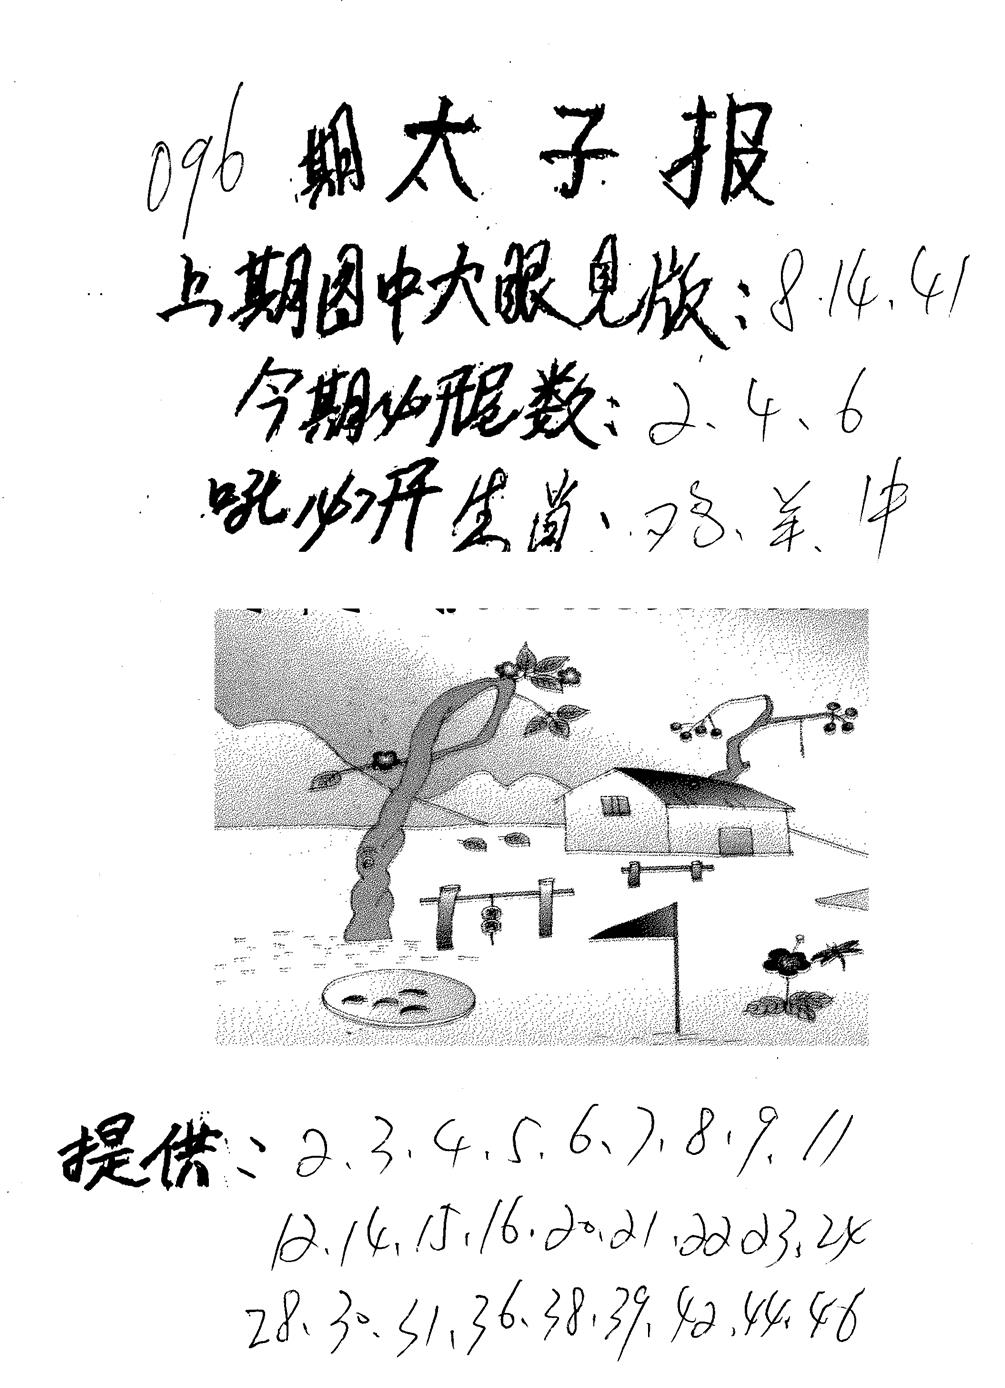 096 期太子报
上期图中大眼见版：8.14.41
今期必开尾数：2、4、6
吼必开生肖、鸡、羊、牛
提供：2、3、4、5、6、7、8、9、11
12、14、15、16、20、21、22、23、24
28、30、31、36、38、39、42、44、46